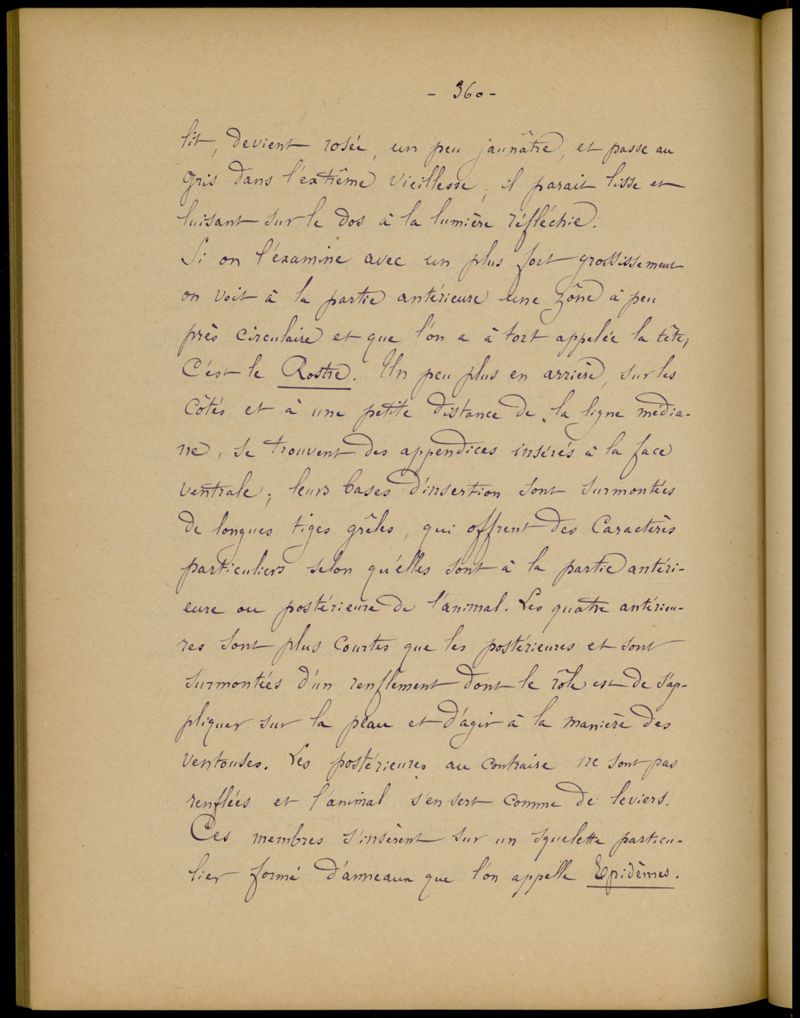 - 360 -
lit, devient rosée, un peu jaunâtre, et passe au
gris dans l'extrême vieillesse; il parait lisse et
luisant sur le dos à la lumière réfléchie.
Si on l'examine avec un plus fort grossissement
on voit à la partie antérieure une zône à peu
près circulaire et que l'on a à tort appelée la tête;
C'est le Rostre. Un peu plus en arrière, sur les
côtés et à une petite distance de la ligne média-
ne, se trouvent des appendices insérés à la face
ventrale; leurs bases d'insertion sont surmontées
de longues tiges grêles, qui offrent des caractères
particuliers selon qu'elles sont à la partie antéri-
eure ou postérieure de l'animal. Les quatre antérieu-
res sont plus courtes que les postérieures et sont
surmontées d'un renflement dont le rôle est de s'ap-
pliquer sur la peau et d'agir à la manière des
ventouses. Les postérieures au contraire ne sont pas
renflées et l'animal s'en sert comme de leviers.
Ces membres s'insèrent sur un squelette particu-
lier formé d'anneaux que l'on appelle Epidèmes.